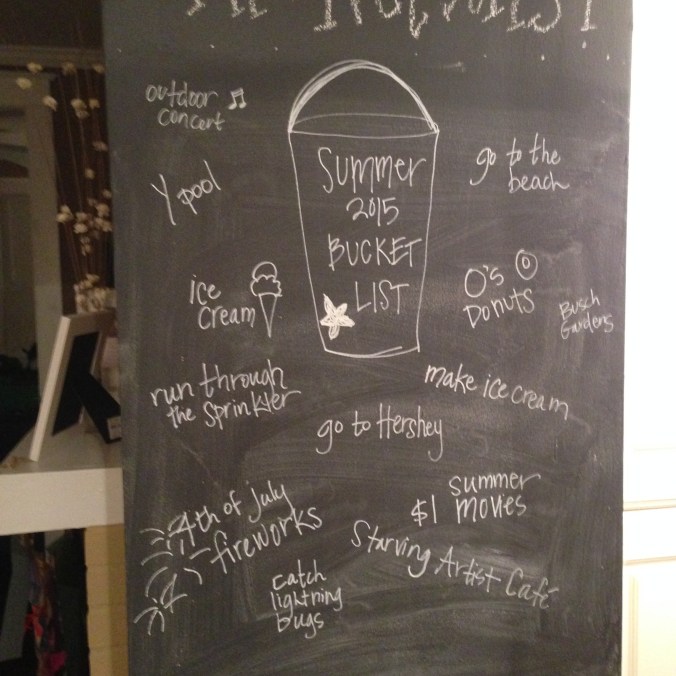 outdoor
concert
Y pool
ice
cream
run through
the sprinkler
4th of july
fireworks
catch
lightning
bugs
Summer
2015
BUCKET
LIST
go to Hershey
go to the
beach
O's O
Donuts
Busch
Gardens
make ice cream
summer
$1 movies
Starving Artist Café